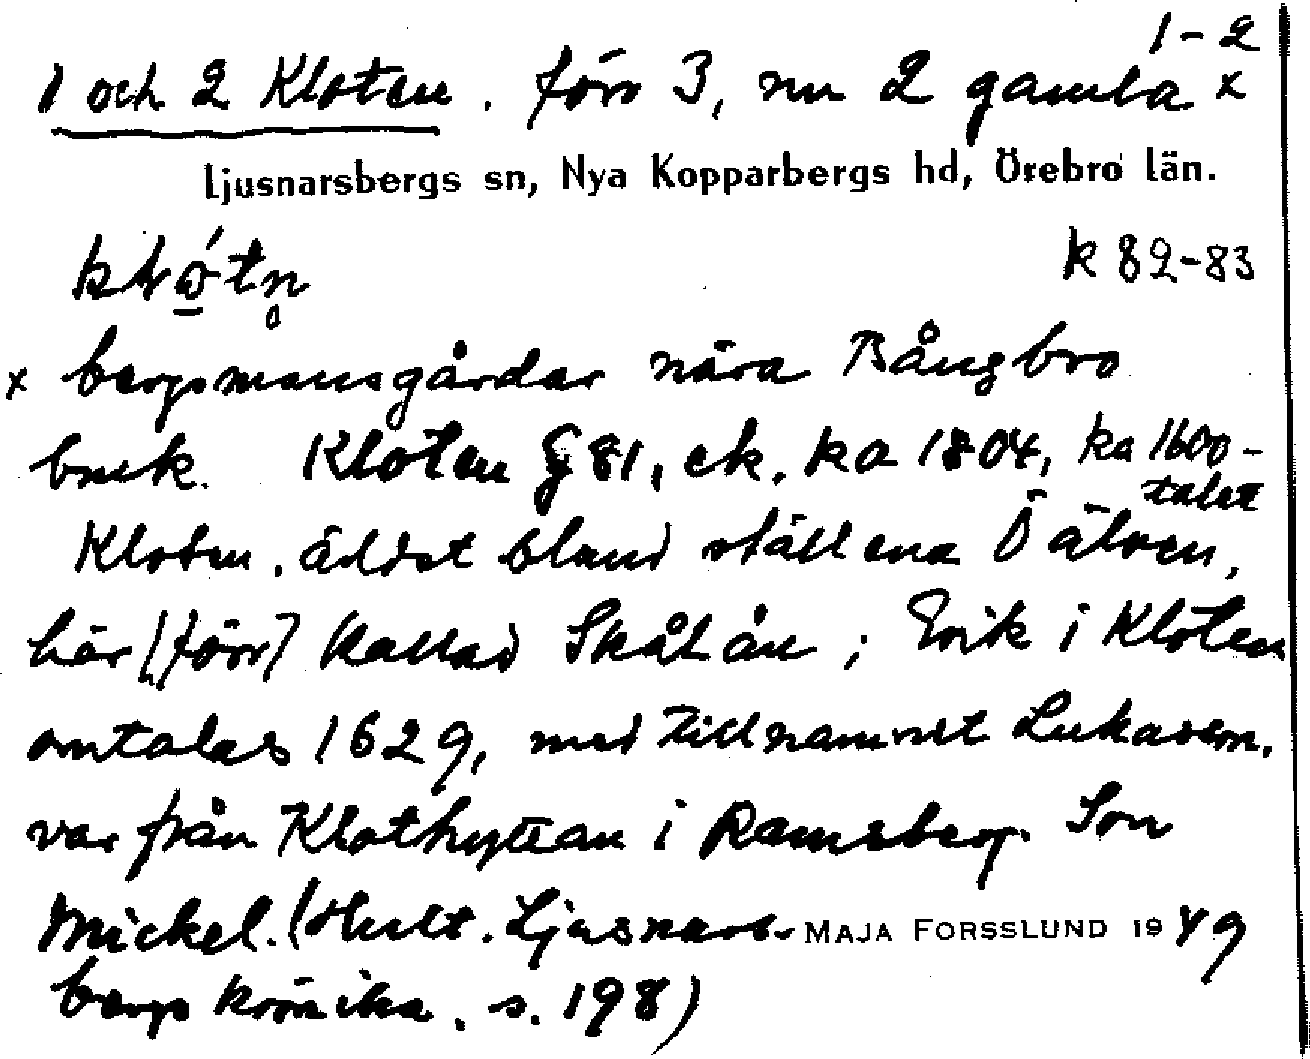 1-2
1 och 2 Kloten. förr 3, nu 2 gamla x
Ljusnarsbergs sn, Nya Kopparbergs hd, Örebro län.
k 82-83
x bergsmansgårdar nära Bångbro
bruk. Kloten G 81, ek. ka 1804, ka 1600-
talet
Kloten. äldst bland ställena Ö älven,
här (förr) kallad Skålån; Erik i Kloten
omtalas 1629, med tillnamnet Lukasson.
var från Klothyttan i Ramsberg. Son
Mickel. (Hult. Ljusnars-
MAJA FORSSLUND 1949
bergs krönika. s. 198)